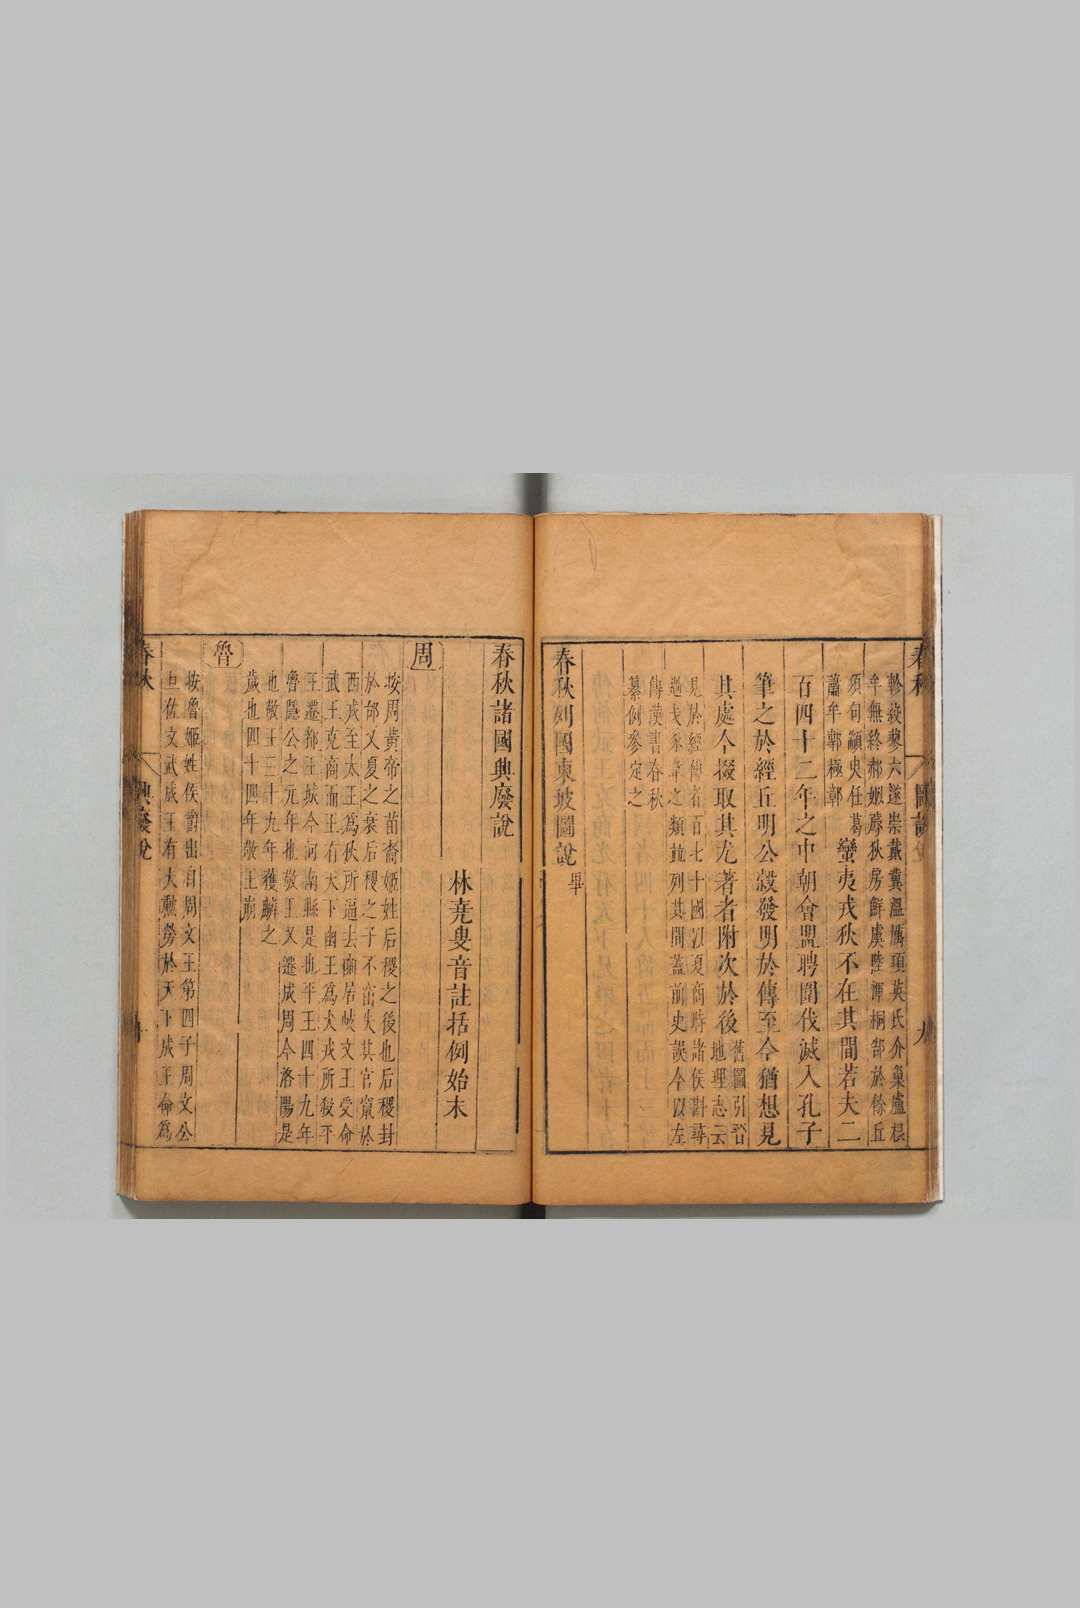 軫絞蓼六遂崇戴冀溫厲項英氏介巢盧根
牟無終郝姻蓐狄房鮮虞陸渾桐郜於餘丘
須句顓臾任葛
蕭牟鄣極鄣
蠻夷戎狄不在其間若夫二
百四十二年之中朝會盟聘圍伐滅入孔子
筆之於經丘明公穀發明於傳至今猶想見
其處今掇取其尤著者附次於後
舊圖引
地理志云
見於經傳者百七十國以夏商時諸侯斟尋
過戈豕韋之類並列其間蓋前史誤今以左
傳漢書春秋
纂例參定之
春秋列國東坡圖說 畢
春秋諸國興廢說
林堯叟音註括例始末
周
按周黃帝之苗裔姬姓后稷之後也后稷封
於邰及夏之衰后稷之子不窋失其官竄於
西戎至太王為狄所逼去豳居岐文王受命
武王克商而有天下幽王為犬戎所殺平
王遷都王城今河南縣是也平王四十九年
魯隱公之元年也敬王又遷成周今洛陽是
也敬王三十九年獲麟之
歲也四十四年敬王崩
魯
按魯姬姓侯爵出自周文王第四子周文公
旦佐文武成王有大勲勞於天下成王命為
春秋
興廢說
十